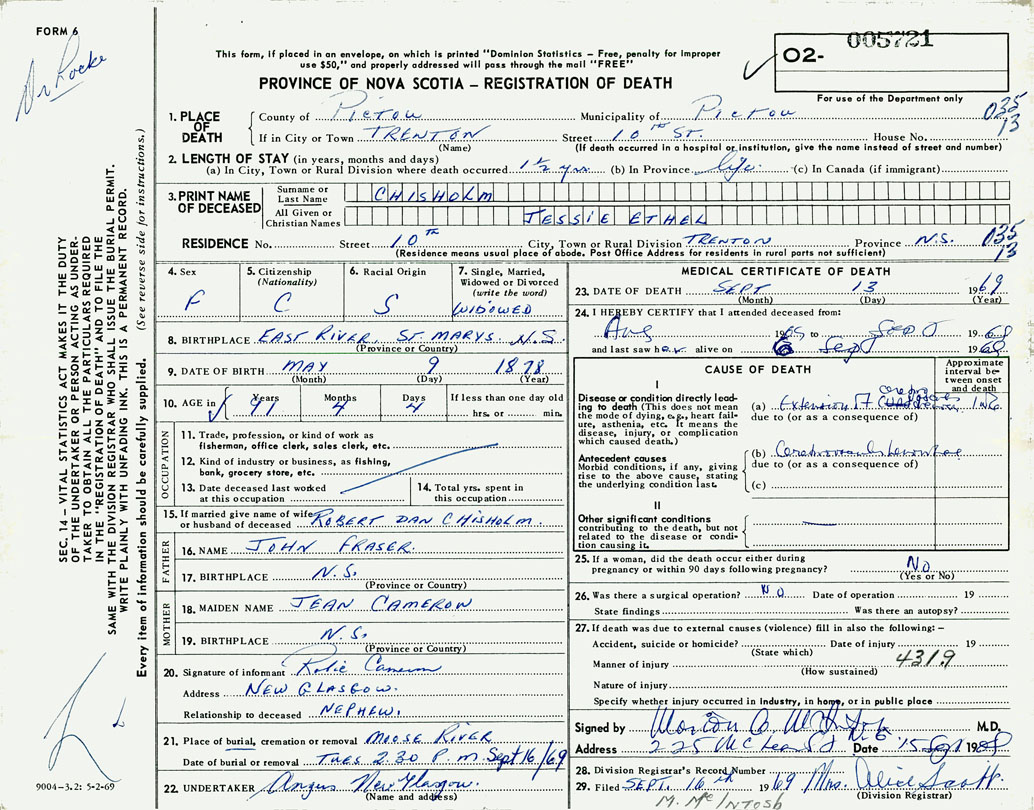 FORM 6
Dr Locke
This form, if placed in an envelope, on which is printed "Dominion Statistics – Free, penalty for improper
use $50," and properly addressed will pass through the mail "FREE"
PROVINCE OF NOVA SCOTIA – REGISTRATION OF DEATH
O2- 005721
For use of the Department only
1. PLACE OF DEATH
County of Pictou Municipality of Pictou 035
If in City or Town TRENTON Street 10th ST. House No. 13
(Name) (If death occurred in a hospital or institution, give the name instead of street and number)
2. LENGTH OF STAY (in years, months and days)
(a) In City, Town or Rural Division where death occurred 1½ yrs (b) In Province life. (c) In Canada (if immigrant)
3. PRINT NAME OF DECEASED
Surname or Last Name CHISHOLM
All Given or Christian Names JESSIE ETHEL
RESIDENCE No. Street 10th City, Town or Rural Division TRENTON Province N.S. 035
(Residence means usual place of abode. Post Office Address for residents in rural parts not sufficient) 13
4. Sex F
5. Citizenship (Nationality) C
6. Racial Origin S
7. Single, Married, Widowed or Divorced (write the word) WIDOWED
8. BIRTHPLACE EAST RIVER, ST MARYS. N.S.
(Province or Country)
9. DATE OF BIRTH MAY 9 1878
(Month) (Day) (Year)
10. AGE in Years 91 Months 4 Days 4 If less than one day old
hrs. or min.
OCCUPATION
11. Trade, profession, or kind of work as
fisherman, office clerk, sales clerk, etc.
12. Kind of industry or business, as fishing,
bank, grocery store, etc.
13. Date deceased last worked
at this occupation
14. Total yrs. spent in
this occupation
15. If married give name of wife
or husband of deceased ROBERT DAN CHISHOLM.
FATHER
16. NAME JOHN FRASER.
17. BIRTHPLACE N.S.
(Province or Country)
MOTHER
18. MAIDEN NAME JEAN CAMERON
19. BIRTHPLACE N.S.
(Province or Country)
20. Signature of informant Cameron
Address NEW GLASGOW.
Relationship to deceased NEPHEW.
21. Place of burial, cremation or removal MOOSE RIVER
Date of burial or removal TUES 2.30 P.M. Sept 16/69
22. UNDERTAKER Angus New Glasgow.
(Name and address)
MEDICAL CERTIFICATE OF DEATH
23. DATE OF DEATH SEPT 13 1969
(Month) (Day) (Year)
24. I HEREBY CERTIFY that I attended deceased from:
Aug to Sept
and last saw her alive on Sept
CAUSE OF DEATH
Approximate interval between onset and death
I
Disease or condition directly leading
to death (This does not mean
the mode of dying, e.g., heart failure,
asthenia, etc. It means the
disease, injury, or complication
which caused death.)
(a) Extension of
due to (or as a consequence of)
Antecedent causes
Morbid conditions, if any, giving
rise to the above cause, stating
the underlying condition last.
(b)
due to (or as a consequence of)
(c)
II
Other significant conditions
contributing to the death, but not
related to the disease or condition
causing it.
25. If a woman, did the death occur either during
pregnancy or within 90 days following pregnancy? NO
(Yes or No)
26. Was there a surgical operation? NO Date of operation 19
State findings Was there an autopsy?
27. If death was due to external causes (violence) fill in also the following: –
Accident, suicide or homicide? Date of injury 19
(State which)
Manner of injury 431.9
(How sustained)
Nature of injury
Specify whether injury occurred in industry, in home, or in public place
Signed by M.D.
Address 225 McLean St Date 15 Sept 19
28. Division Registrar's Record Number
29. Filed SEPT. 16th 1969 Mrs. Alice Scott
(Division Registrar)
M. McINTOSH
SEC. 14 – VITAL STATISTICS ACT MAKES IT THE DUTY
OF THE UNDERTAKER OR PERSON ACTING AS UNDERTAKER
TO OBTAIN ALL THE PARTICULARS REQUIRED
IN THE "REGISTRATION OF DEATH" AND TO FILE THE
SAME WITH THE DIVISION REGISTRAR WHO SHALL ISSUE THE BURIAL PERMIT.
WRITE PLAINLY WITH UNFADING INK. THIS IS A PERMANENT RECORD.
Every item of information should be carefully supplied. (See reverse side for instructions.)
9004–3.2: 5-2-69